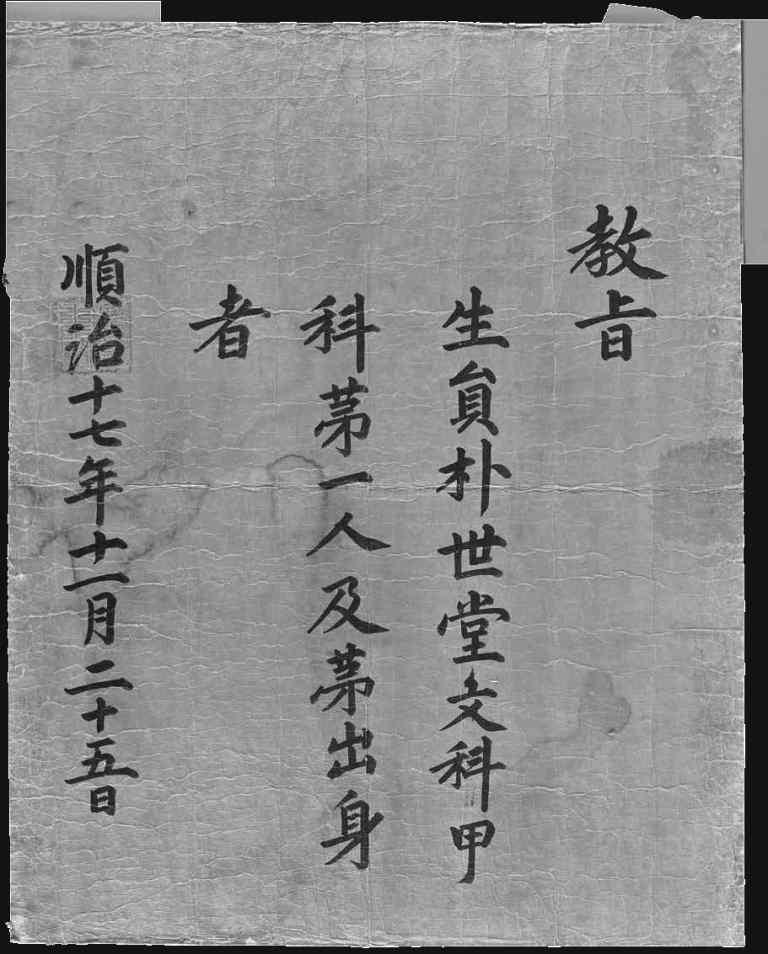 教旨
生貟朴世堂文科甲
科苐一人及苐出身
者
順治十七年十一月二十五日